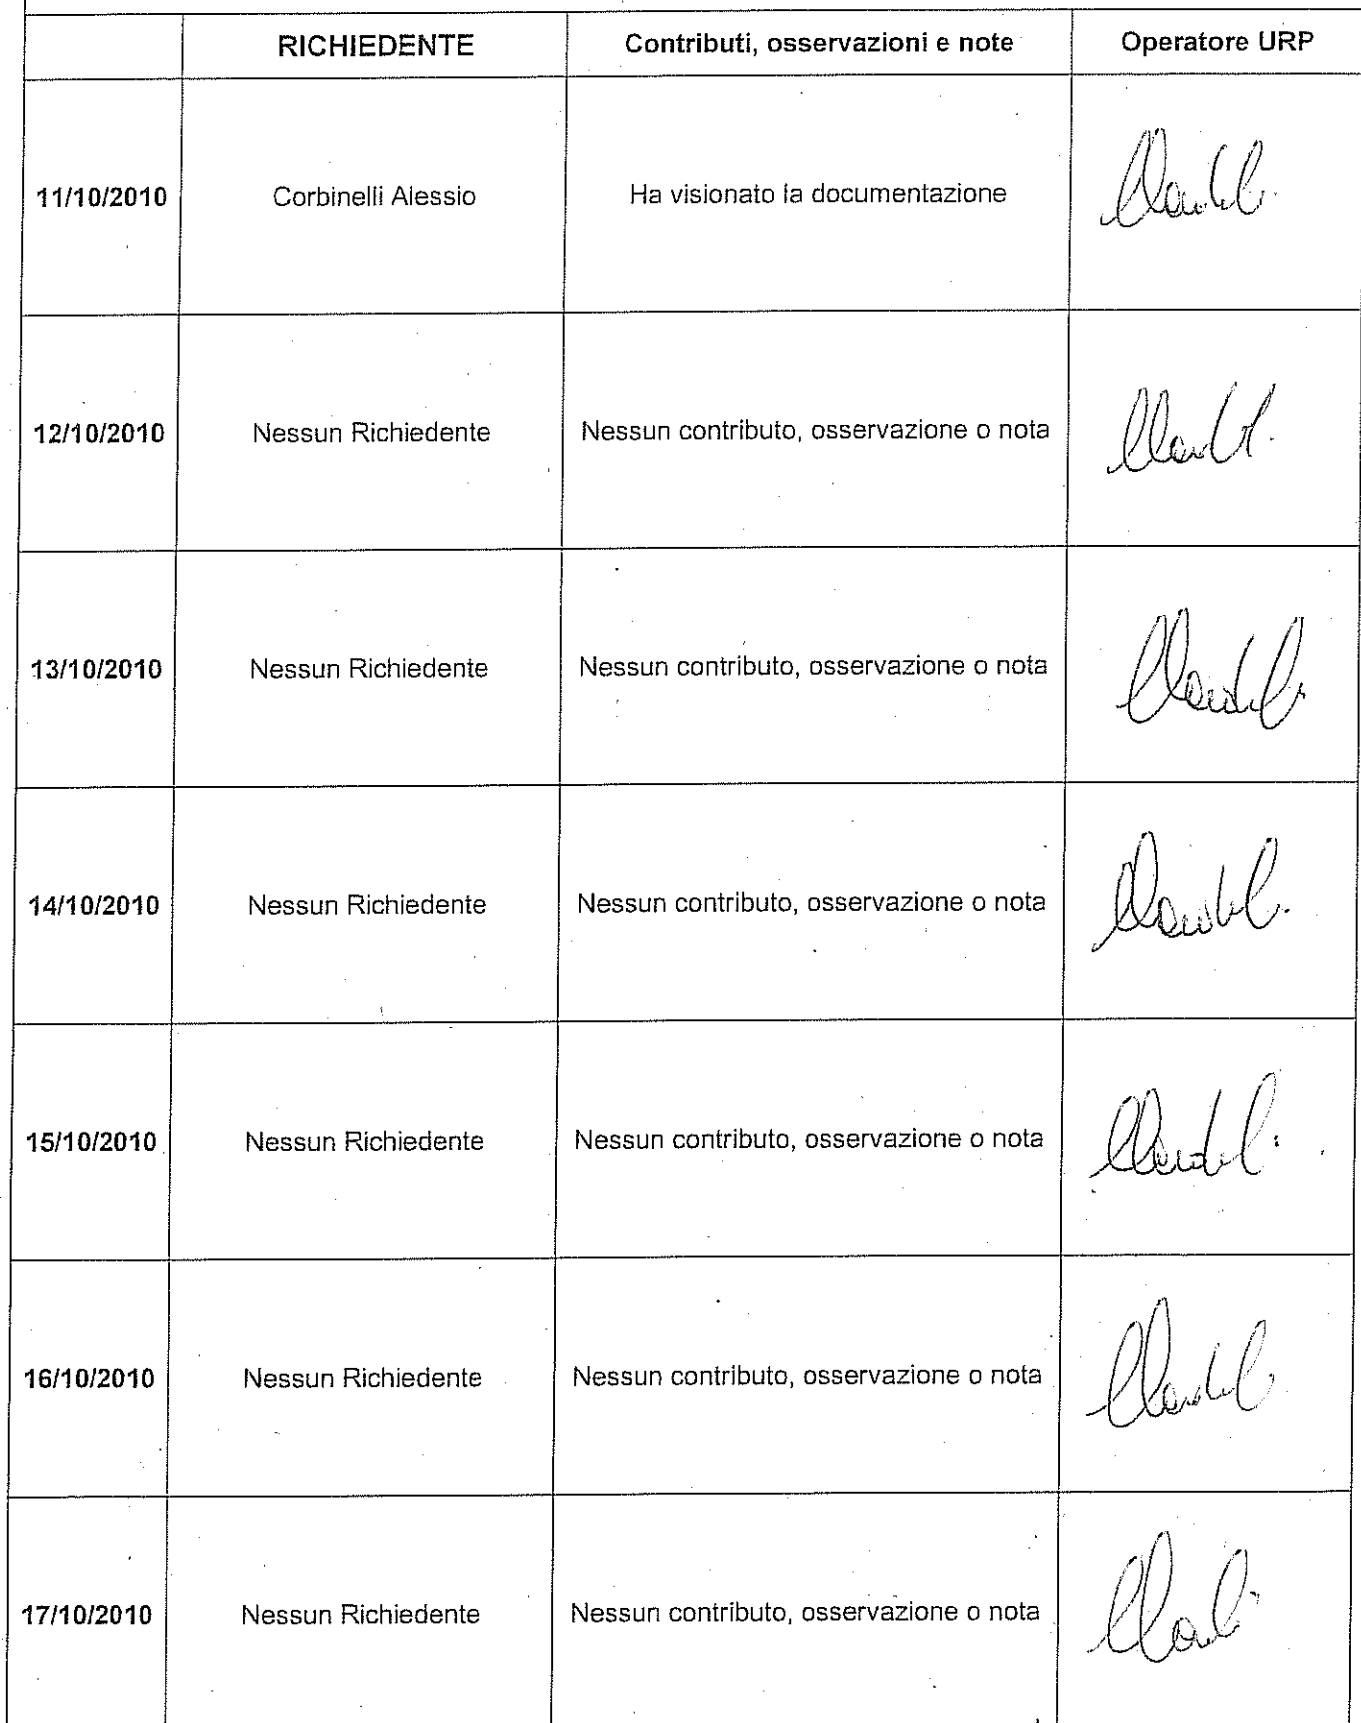 RICHIEDENTE Contributi, osservazioni e note Operatore URP
11/10/2010 Corbinelli Alessio Ha visionato la documentazione
12/10/2010 Nessun Richiedente Nessun contributo, osservazione o nota
13/10/2010 Nessun Richiedente Nessun contributo, osservazione o nota
14/10/2010 Nessun Richiedente Nessun contributo, osservazione o nota
15/10/2010 Nessun Richiedente Nessun contributo, osservazione o nota
16/10/2010 Nessun Richiedente Nessun contributo, osservazione o nota
17/10/2010 Nessun Richiedente Nessun contributo, osservazione o nota